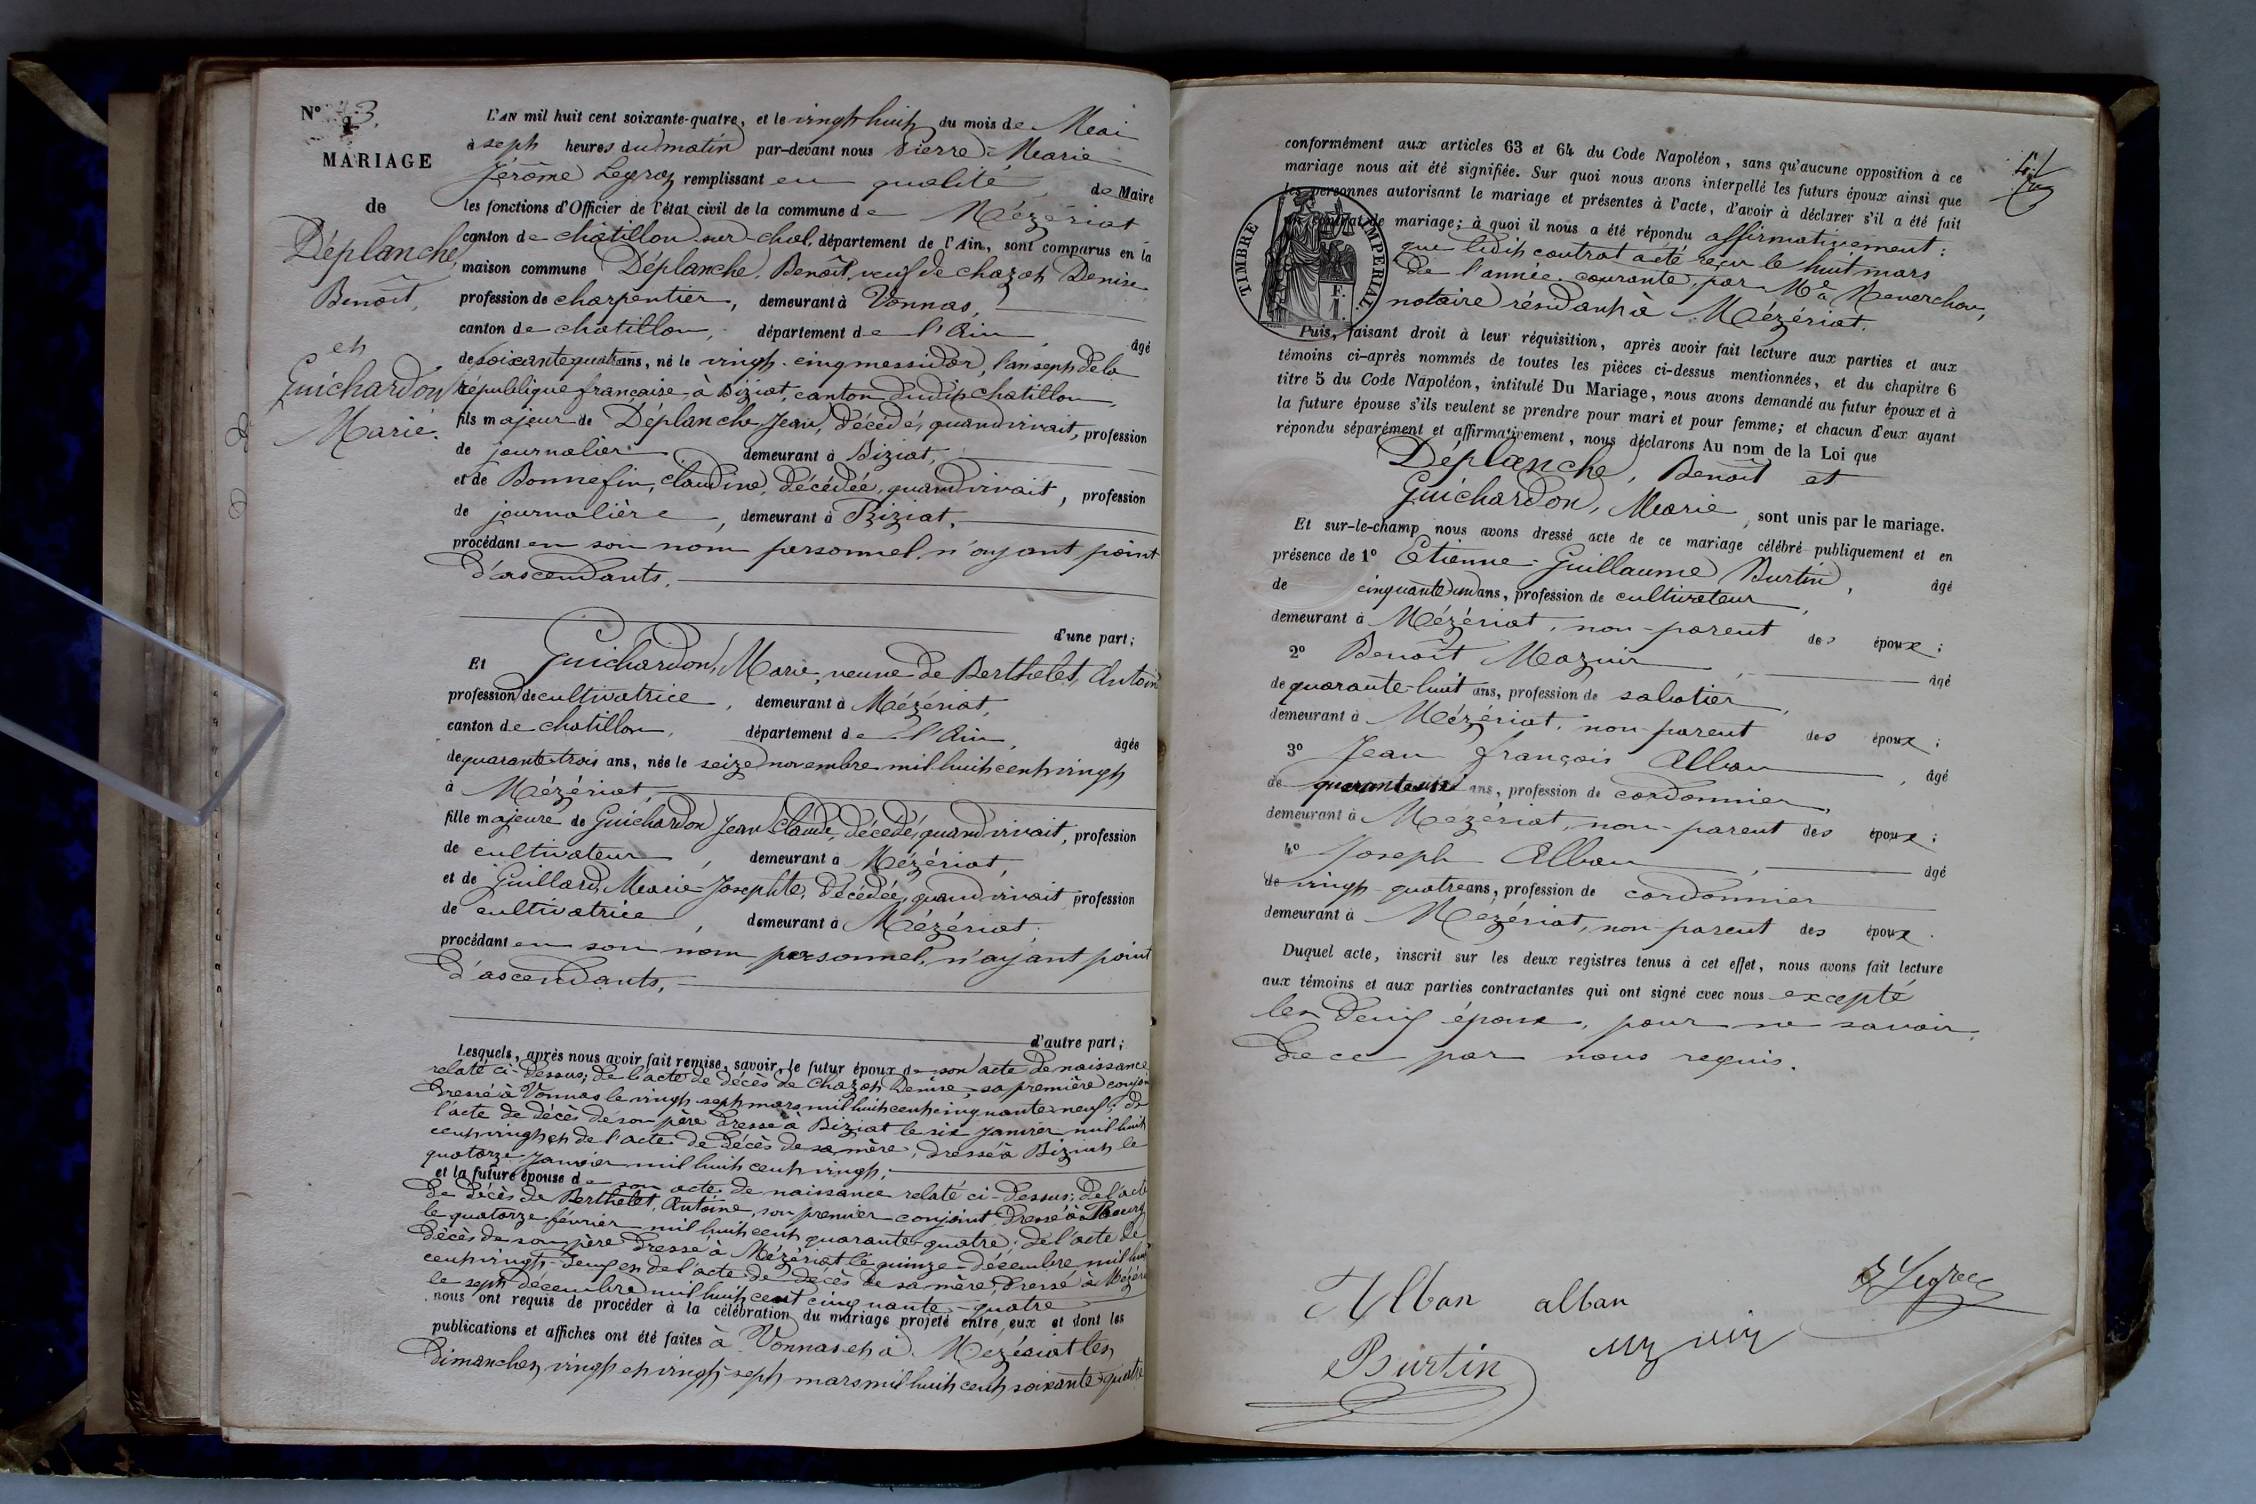 N° 13.
MARIAGE
de
Déplanche,
Benoît,
et
Guichardon
Marie.
L'AN mil huit cent soixante-quatre, et le vingt huit du mois de Mai
à sept heures du matin par-devant nous Pierre-Marie-
Jérôme Legroz remplissant en qualité de Maire
les fonctions d'Officier de l'état civil de la commune de Mézériat
canton de châtillon sur chal. département de l'Ain, sont comparus en la
maison commune Déplanche, Benoît, veuf de chazot Denise
profession de charpentier, demeurant à Vonnas,
canton de chatillon, département de l'Ain, âgé
de soixante quatre ans, né le vingt-cinq messidor, l'an sept de la
république française, à Biziat, canton dudit chatillon,
fils majeur de Déplanche, Jean, décédé, quand vivait, profession
de journalier demeurant à Biziat,
et de Bonnefin, claudine, décédée, quand vivait, profession
de journalière, demeurant à Biziat,
procédant en son nom personnel, n'ayant point
d'ascendants,
d'une part;
Et Guichardon, Marie, veuve de Berthelet, Antoine
profession de cultivatrice, demeurant à Mézériat,
canton de chatillon, département de l'Ain, âgée
de quarante-trois ans, née le seize novembre mil huit cent vingt
à Mézériat,
fille majeure de Guichardon Jean Claude, décédé, quand vivait, profession
de cultivateur, demeurant à Mézériat,
et de Guillard, Marie Josephte, décédée, quand vivait profession
de cultivatrice, demeurant à Mézériat,
procédant en son nom personnel, n'ayant point
d'ascendants,
d'autre part;
Lesquels, après nous avoir fait remise, savoir, le futur époux de son acte de naissance
relaté ci-dessus; de l'acte de décès de Chazot Denise, sa première conjointe
dressé à Vonnas le vingt-sept mars mil huit cent cinquante-neuf; de
l'acte de décès de son père dressé à Biziat le six janvier mil huit
cent vingt et de l'acte de décès de sa mère, dressé à Biziat le
quatorze janvier mil huit cent vingt;
et la future épouse de son acte de naissance relaté ci-dessus; de l'acte
de décès de Berthelet, Antoine, son premier conjoint dressé à Bourg
le quatorze février mil huit cent quarante-quatre; de l'acte de
décès de son père dressé à Mézériat le quinze décembre mil huit
cent vingt-deux et de l'acte de décès de sa mère, dressé à Mézériat
le sept décembre mil huit cent cinquante-quatre
nous ont requis de procéder à la célébration du mariage projeté entre eux et dont les
publications et affiches ont été faites à Vonnas et à Mézériat les
dimanches vingt et vingt-sept mars mil huit cent soixante-quatre
conformément aux articles 63 et 64 du Code Napoléon, sans qu'aucune opposition à ce
mariage nous ait été signifiée. Sur quoi nous avons interpellé les futurs époux ainsi que
les personnes autorisant le mariage et présentes à l'acte, d'avoir à déclarer s'il a été fait
un contrat de mariage; à quoi il nous a été répondu affirmativement:
que ledit contrat a été reçu le huit mars
de l'année courante, par Me
notaire résidant à Mézériat.
TIMBRE IMPERIAL
F.
1.
Puis, faisant droit à leur réquisition, après avoir fait lecture aux parties et aux
témoins ci-après nommés de toutes les pièces ci-dessus mentionnées, et du chapitre 6
titre 5 du Code Napoléon, intitulé Du Mariage, nous avons demandé au futur époux et à
la future épouse s'ils veulent se prendre pour mari et pour femme; et chacun d'eux ayant
répondu séparément et affirmativement, nous déclarons Au nom de la Loi que
Déplanche, Benoît et
Guichardon, Marie, sont unis par le mariage.
Et sur-le-champ nous avons dressé acte de ce mariage célébré publiquement et en
présence de 1° Etienne-Guillaume Burtin, âgé
de cinquante un ans, profession de cultivateur,
demeurant à Mézériat, non-parent des époux;
2° Benoît Mazuir, âgé
de quarante-huit ans, profession de sabotier,
demeurant à Mézériat, non parent des époux;
3° Jean François Alban, âgé
de ans, profession de cordonnier,
demeurant à Mézériat, non-parent des époux;
4° Joseph Alban, âgé
de vingt-quatre ans, profession de cordonnier
demeurant à Mézériat, non parent des époux.
Duquel acte, inscrit sur les deux registres tenus à cet effet, nous avons fait lecture
aux témoins et aux parties contractantes qui ont signé avec nous excepté
les deux époux, pour ne savoir,
de ce par nous requis.
Alban alban
Burtin